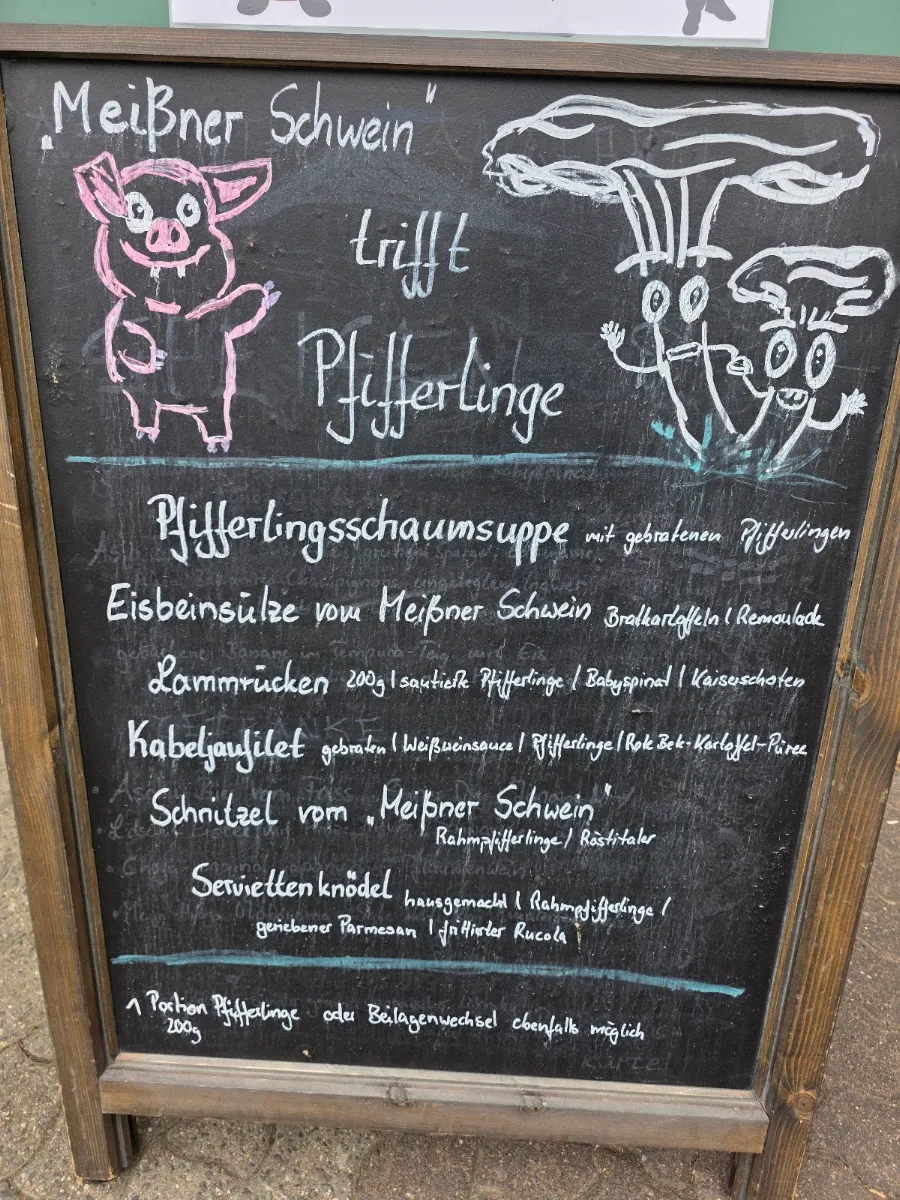 „Meißner Schwein"
trifft
Pfifferlinge
Pfifferlingsschaumsuppe mit gebratenen Pfifferlingen
Eisbeinsülze vom Meißner Schwein Bratkartoffeln / Remoulade
Lammrücken 200g / sautierte Pfifferlinge / Babyspinat / Kaiserschoten
Kabeljaufilet gebraten / Weißweinsauce / Pfifferlinge / Rote Bete-Kartoffel-Püree
Schnitzel vom „Meißner Schwein"
Rahmpfifferlinge / Röstitaler
Serviettenknödel hausgemacht / Rahmpfifferlinge /
geriebener Parmesan / frittierter Rucola
1 Portion Pfifferlinge oder Beilagenwechsel ebenfalls möglich
200g